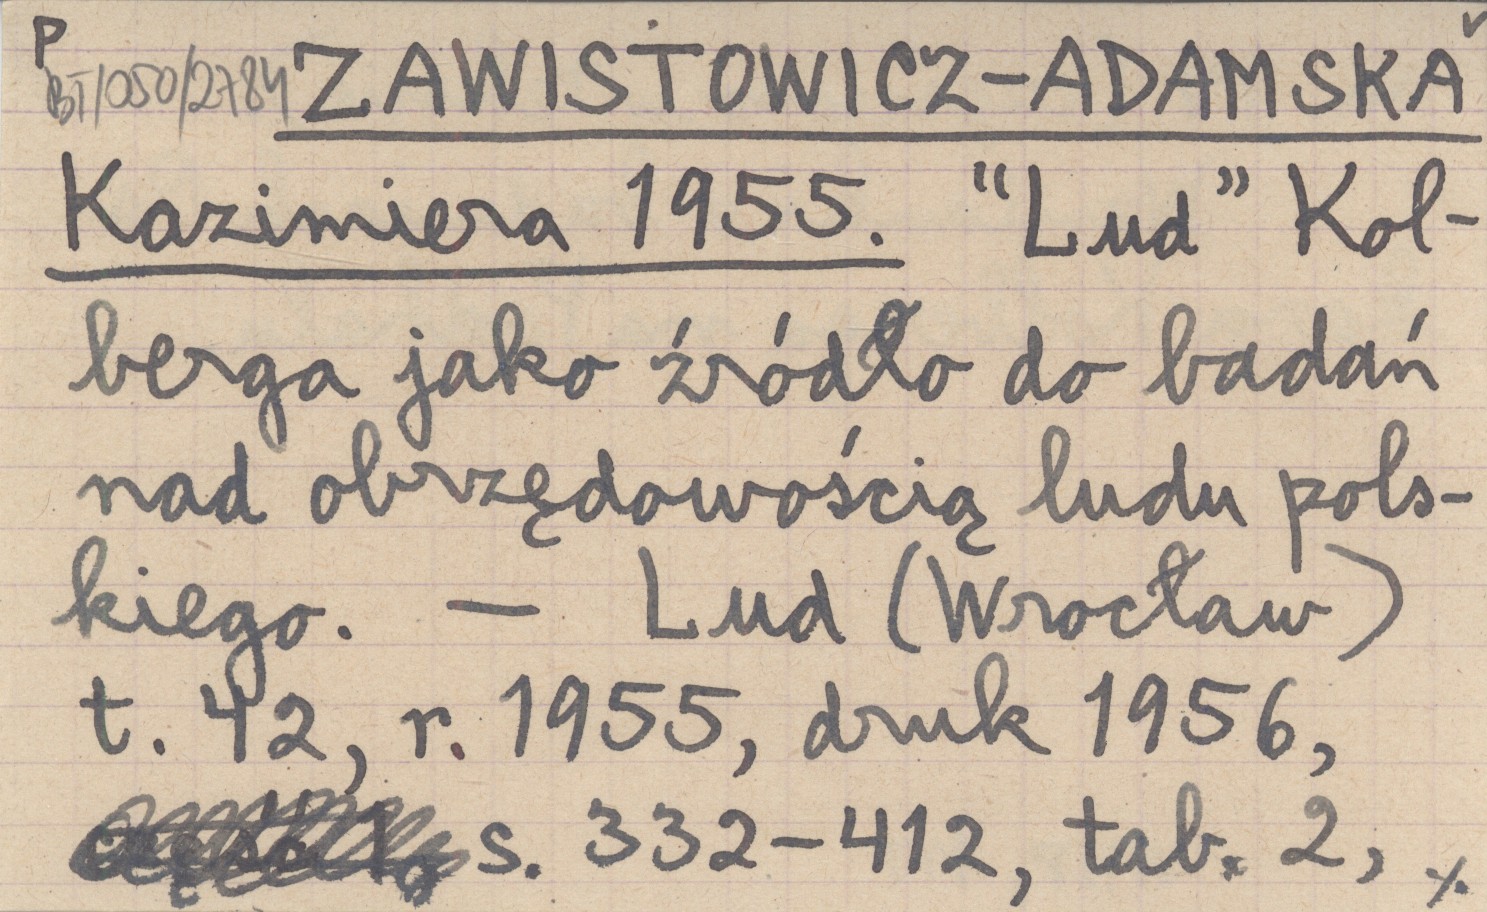 P
BT/050/2784 ZAWISTOWICZ-ADAMSKA ✓
Kazimiera 1955. "Lud" Kol-
berga jako źródło do badań
nad obrzędowością ludu pols-
kiego. — Lud (Wrocław)
t. 42, r. 1955, druk 1956,
s. 332-412, tab. 2, ./.